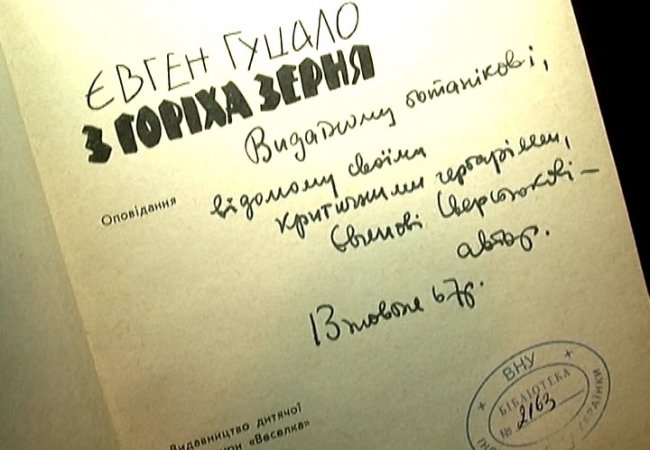 ЄВГЕН ГУЦАЛО
З ГОРІХА ЗЕРНЯ
Оповідання
Видатному ботанікові,
відомому своїми
критичними гербаріями,
Євгенові Сверстюкові –
автор.
13 жовтня 67р.
Видавництво дитячої
«Веселка»
ВНУ
БІБЛІОТЕКА
№ 2163
УКРАЇНКИ